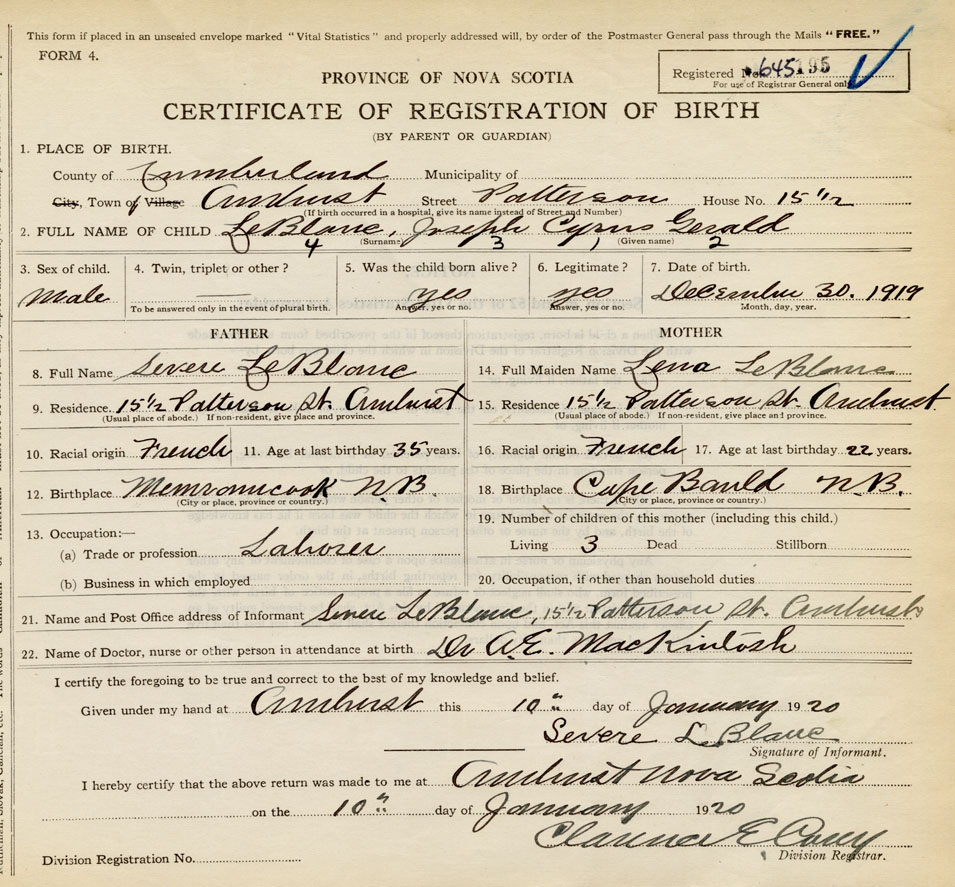 This form if placed in an unsealed envelope marked "Vital Statistics" and properly addressed will, by order of the Postmaster General pass through the Mails "FREE."
FORM 4.
Registered No. 645195
For use of Registrar General only
PROVINCE OF NOVA SCOTIA
CERTIFICATE OF REGISTRATION OF BIRTH
(BY PARENT OR GUARDIAN)
1. PLACE OF BIRTH.
County of Cumberland Municipality of
City, Town of Village Amherst Street Patterson House No. 15 1/2
(If birth occurred in a hospital, give its name instead of Street and Number)
2. FULL NAME OF CHILD LeBlanc, Joseph Cyrus Gerald
4 (Surname) 3 1 (Given name) 2
3. Sex of child. 4. Twin, triplet or other? 5. Was the child born alive? 6. Legitimate? 7. Date of birth.
Male — yes yes December 30. 1919
To be answered only in the event of plural birth. Answer, yes or no. Answer, yes or no. Month, day, year.
FATHER MOTHER
8. Full Name Severe LeBlanc 14. Full Maiden Name Lena LeBlanc
9. Residence 15 1/2 Patterson St. Amherst 15. Residence 15 1/2 Patterson St. Amherst
(Usual place of abode.) If non-resident, give place and province. (Usual place of abode.) If non-resident, give place and province.
10. Racial origin French 11. Age at last birthday 35 years. 16. Racial origin French 17. Age at last birthday 22 years.
12. Birthplace Memramcook N.B. 18. Birthplace Cape Bauld N.B.
(City or place, province or country.) (City or place, province or country.)
13. Occupation:— 19. Number of children of this mother (including this child.)
(a) Trade or profession Laborer Living 3 Dead Stillborn
(b) Business in which employed 20. Occupation, if other than household duties
21. Name and Post Office address of Informant Severe LeBlanc, 15 1/2 Patterson St. Amherst
22. Name of Doctor, nurse or other person in attendance at birth Dr A.E. MacKintosh
I certify the foregoing to be true and correct to the best of my knowledge and belief.
Given under my hand at Amherst this 10" day of January 1920
Severe LeBlanc
Signature of Informant.
I hereby certify that the above return was made to me at Amherst Nova Scotia
on the 10" day of January 1920
Clarence E
Division Registration No. Division Registrar.